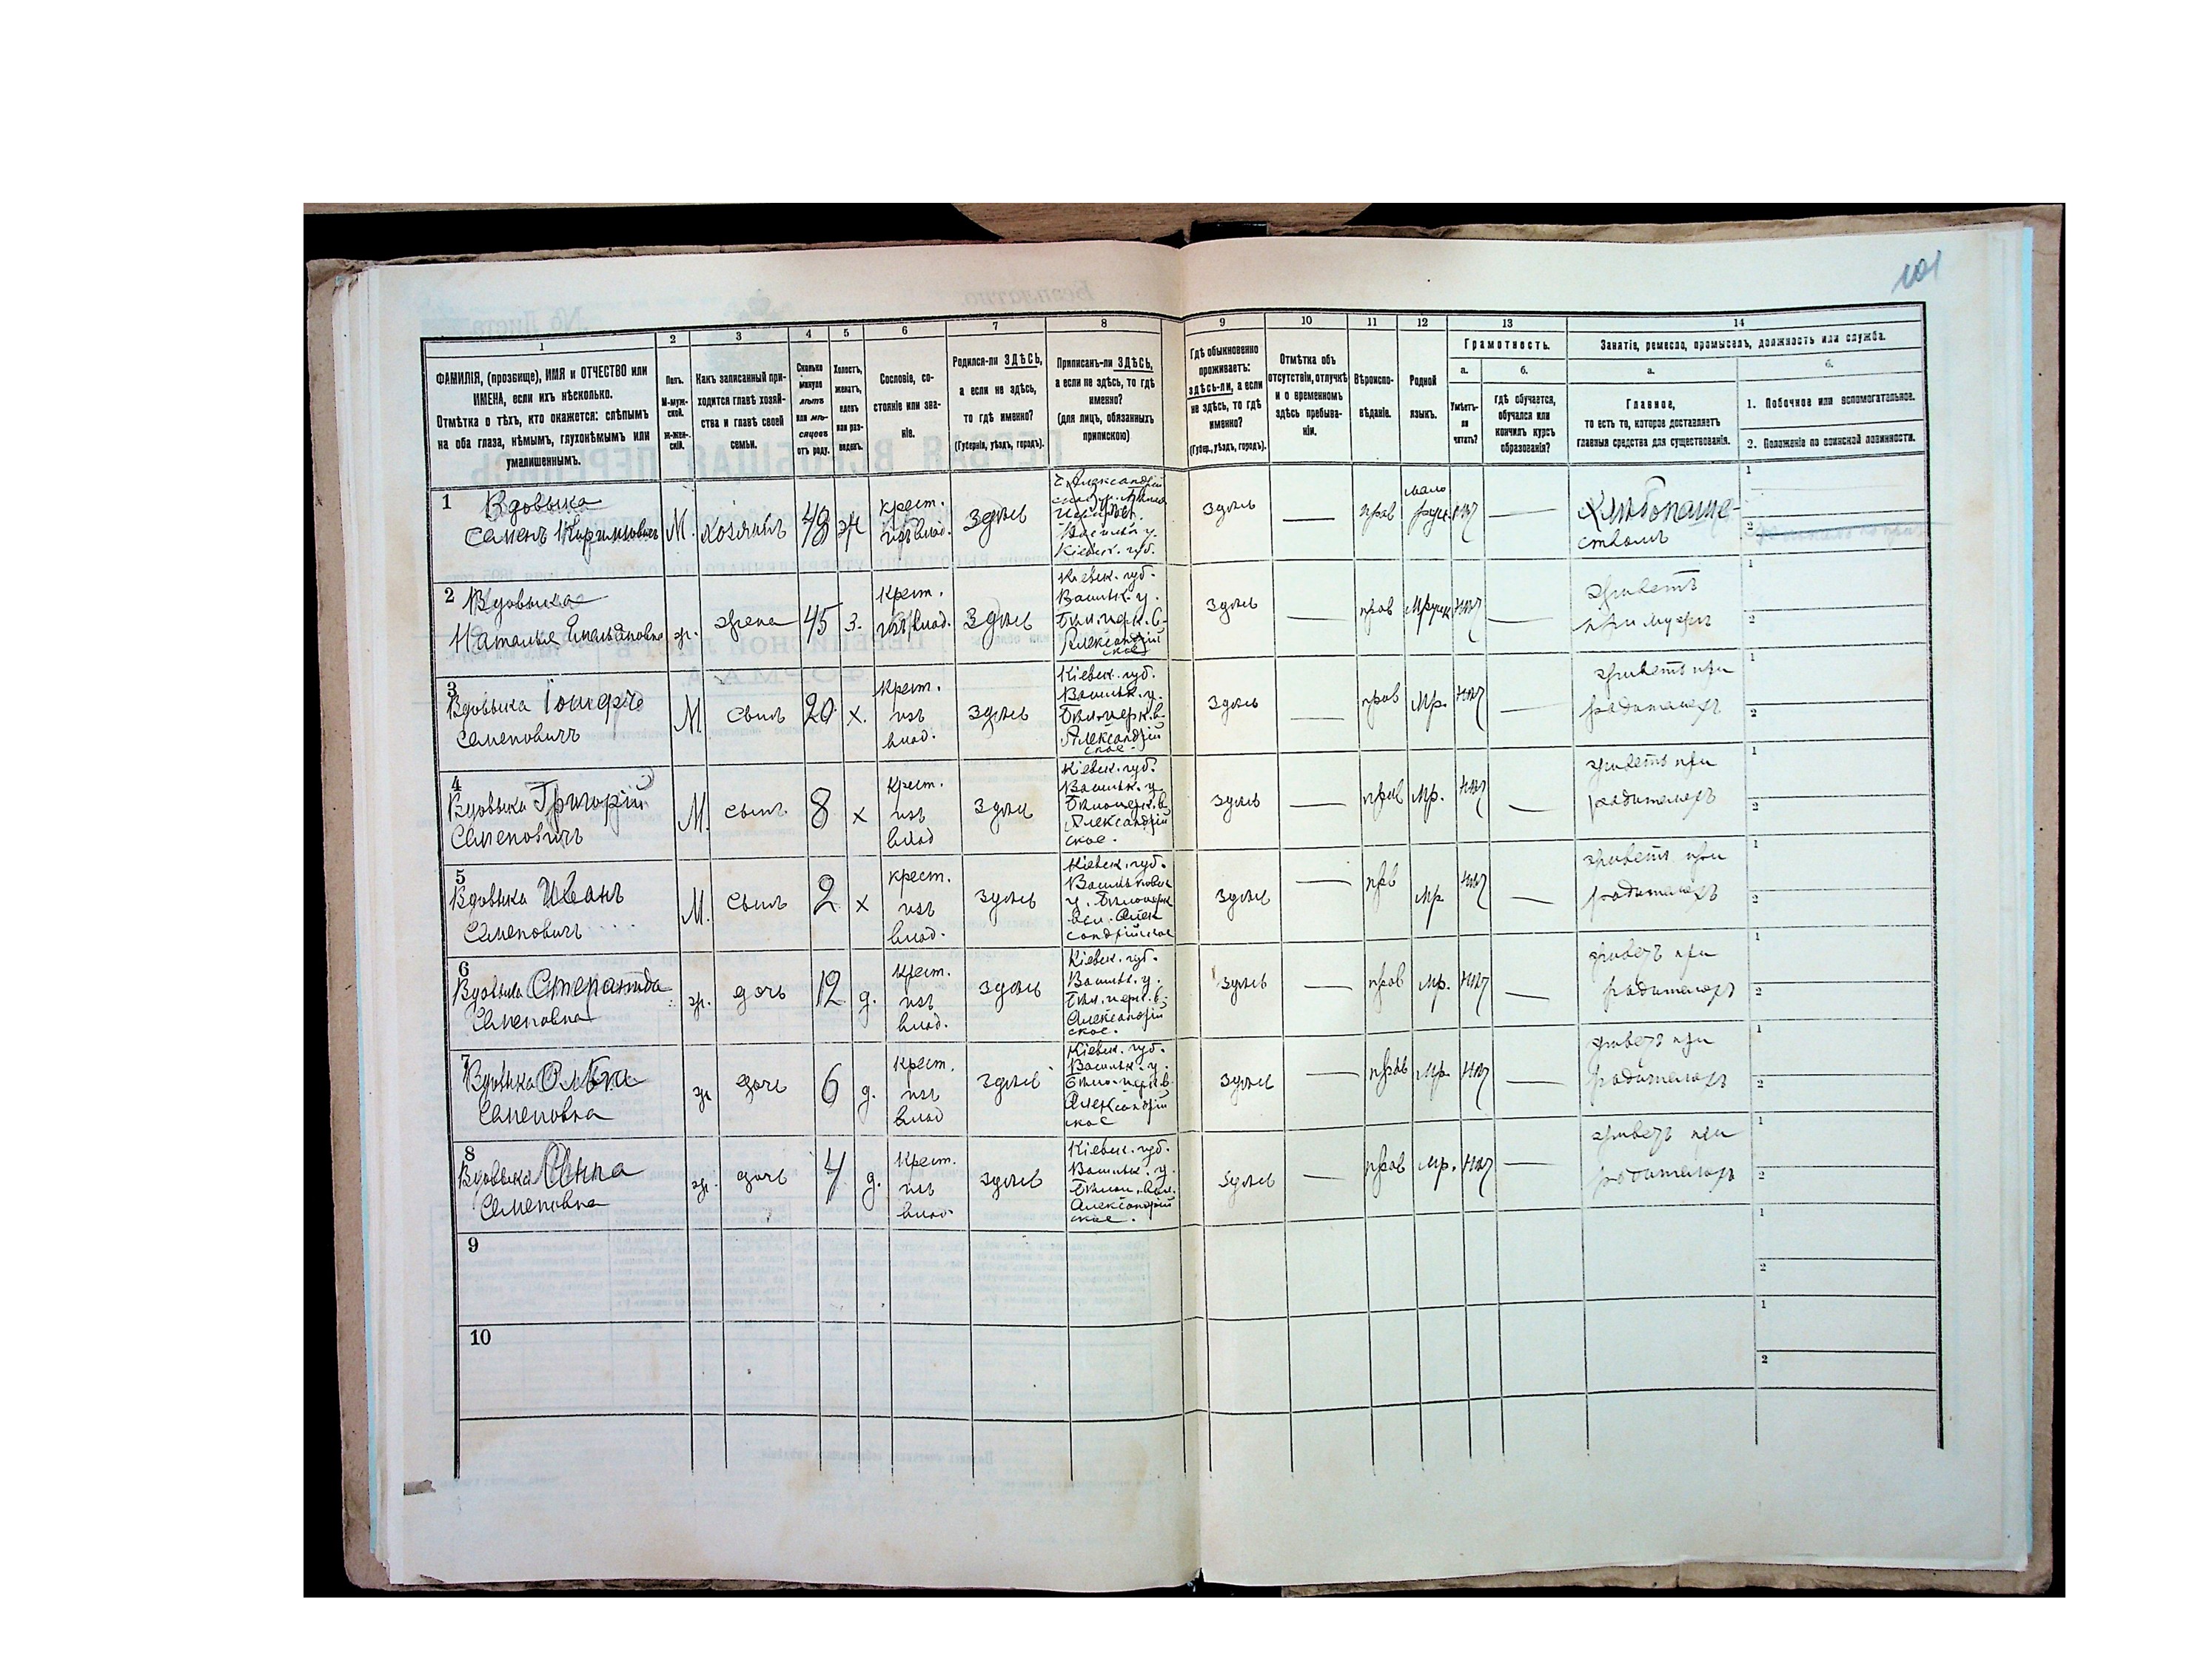 101
1 2 3 4 5 6 7 8 9 10 11 12 13 14
ФАМИЛІЯ, (прозвище), ИМЯ и ОТЧЕСТВО или
ИМЕНА, если ихъ нѣсколько.
Отмѣтка о тѣхъ, кто окажется: слѣпымъ
на оба глаза, нѣмымъ, глухонѣмымъ или
умалишеннымъ.
Полъ.
М-муж-
ской.
Ж-жен-
скій.
Какъ записанный при-
ходится главѣ хозяй-
ства и главѣ своей
семьи.
Сколько
минуло
лѣтъ
или мѣ-
сяцевъ
отъ роду.
Холостъ,
женатъ,
вдовъ
или раз-
веденъ.
Сословіе, со-
стояніе или зва-
ніе.
Родился-ли ЗДѢСЬ,
а если не здѣсь,
то гдѣ именно?
(Губернія, уѣздъ, городъ).
Приписанъ-ли ЗДѢСЬ,
а если не здѣсь, то гдѣ
именно?
(для лицъ, обязанныхъ
припискою)
Гдѣ обыкновенно
проживаетъ:
здѣсь-ли, а если
не здѣсь, то гдѣ
именно?
(Губер., уѣздъ, городъ).
Отмѣтка объ
отсутствіи, отлучкѣ
и о временномъ
здѣсь пребыва-
ніи.
Вѣроиспо-
вѣданіе.
Родной
языкъ.
Грамотность.
а.
Умѣетъ-
ли
читать?
б.
гдѣ обучается,
обучался или
кончилъ курсъ
образованія?
Занятіе, ремесло, промыселъ, должность или служба.
а.
Главное,
то есть то, которое доставляетъ
главныя средства для существованія.
б.
1. Побочное или вспомогательное.
2. Положеніе по воинской повинности.
1 Вдовыка
Семенъ
М. хозяинъ 48 ж
крест.
изъ влад.
здѣсь
Кіевск. губ.
здѣсь — прав
мало
рус. нѣт —
Хлѣбопаше-
ствомъ
1
2
2 Вдовыка
Наталья Емельяновна
ж. жена 45 з.
крест.
изъ влад.
здѣсь
Кіевск. губ.
Васильк. у.
Бѣл. церк. в.
Александрій
ское
здѣсь — прав Мрусск нѣт —
живетъ
при мужѣ
1
2
3
Вдовыка Іосифъ
Семеновичъ
М сынъ 20 х.
крест.
изъ
влад.
здѣсь
Кіевск. губ.
Васильк. у.
Бѣл. церк. в.
Александрій
ское.
здѣсь — прав Мр. нѣт —
живетъ при
родителяхъ
1
2
4
Вдовыка Григорій
Семеновичъ
М. сынъ 8 х
крест.
изъ
влад
здѣсь
Кіевск. губ.
Васильк. у.
Бѣлоцерк. в.
Александрій
ское.
здѣсь — прав Мр. нѣт —
живетъ при
родителяхъ
1
2
5
Вдовыка Иванъ
Семеновичъ
М. сынъ 2 х
крест.
изъ
влад.
здѣсь
Кіевск. губ.
Васильковск
у. Бѣлоцерк
вол. Алек
сандрійское
здѣсь — прв Мр нѣт —
живетъ при
родителяхъ
1
2
6
Вдовыка Степанида
Семеновна
ж. дочь 12 д.
крест.
изъ
влад.
здѣсь
Кіевск. губ.
Васильк. у.
Бѣл. церк. в.
Александрій
ское.
здѣсь — прав Мр. нѣт —
живетъ при
родителяхъ
1
2
7
Вдовыка Ольга
Семеновна
ж дочь 6 д.
крест.
изъ
влад
здѣсь
Кіевск. губ.
Васильк. у.
Бѣло-церк. в.
Александрій
ское
здѣсь — прав Мр. нѣт —
живетъ при
родителяхъ
1
2
8
Вдовыка Анна
Семеновна
ж. дочь 4 д.
крест.
изъ
влад.
здѣсь
Кіевск. губ.
Васильк. у.
Бѣлоц. вол.
Александрій
ское.
здѣсь — прав Мр. нѣт —
живетъ при
родителяхъ
1
2
9
1
2
10
1
2